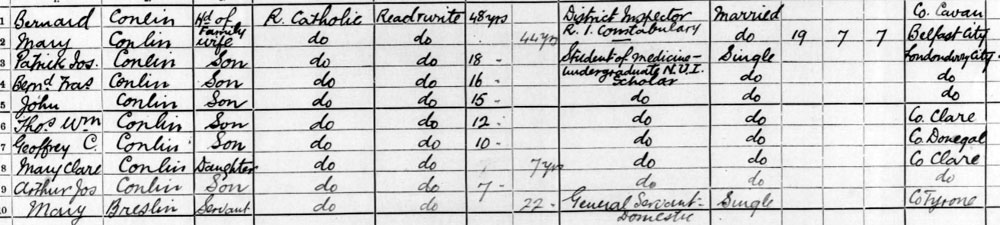 1 Bernard Conlin Hd of Family R. Catholic Read & write 48 yrs District Inspector R. I. Constabulary Married Co. Cavan
2 Mary Conlin wife do do 44 yrs do 19 7 7 Belfast City
3 Patrick Jos. Conlin Son do do 18 - Student of medicine - undergraduate N.U.I. Single Londonderry City
4 Bernd. Fras Conlin Son do do 16 - Scholar do do
5 John Conlin Son do do 15 - do do do
6 Thos. Wm Conlin Son do do 12 - do do Co. Clare
7 Geoffrey C. Conlin Son do do 10 - do do Co. Donegal
8 Mary Clare Conlin Daughter do do 7 yrs do do Co Clare
9 Arthur Jos Conlin Son do do 7 - do do do
10 Mary Breslin Servant do do 22 - General Servant - Domestic Single Co Tyrone